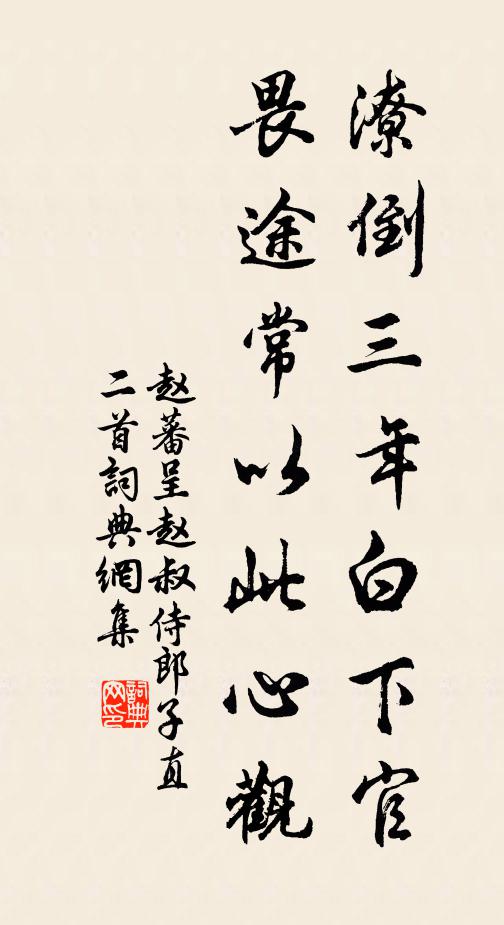 潦倒三年白下官
畏途常以此心觀
赵蕃呈赵叔侍郎子直
二首詞典網集
詞典网印